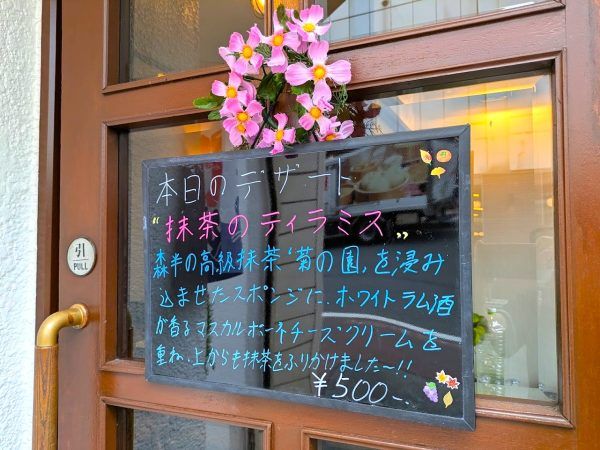 本日のデザート
"抹茶のティラミス„
森半の高級抹茶'菊の園,を浸み
込ませたスポンジに、ホワイトラム酒
が香るマスカルポーネチーズクリームを
重ね、上からも抹茶をふりかけました〜!!
¥500-.
引
PULL